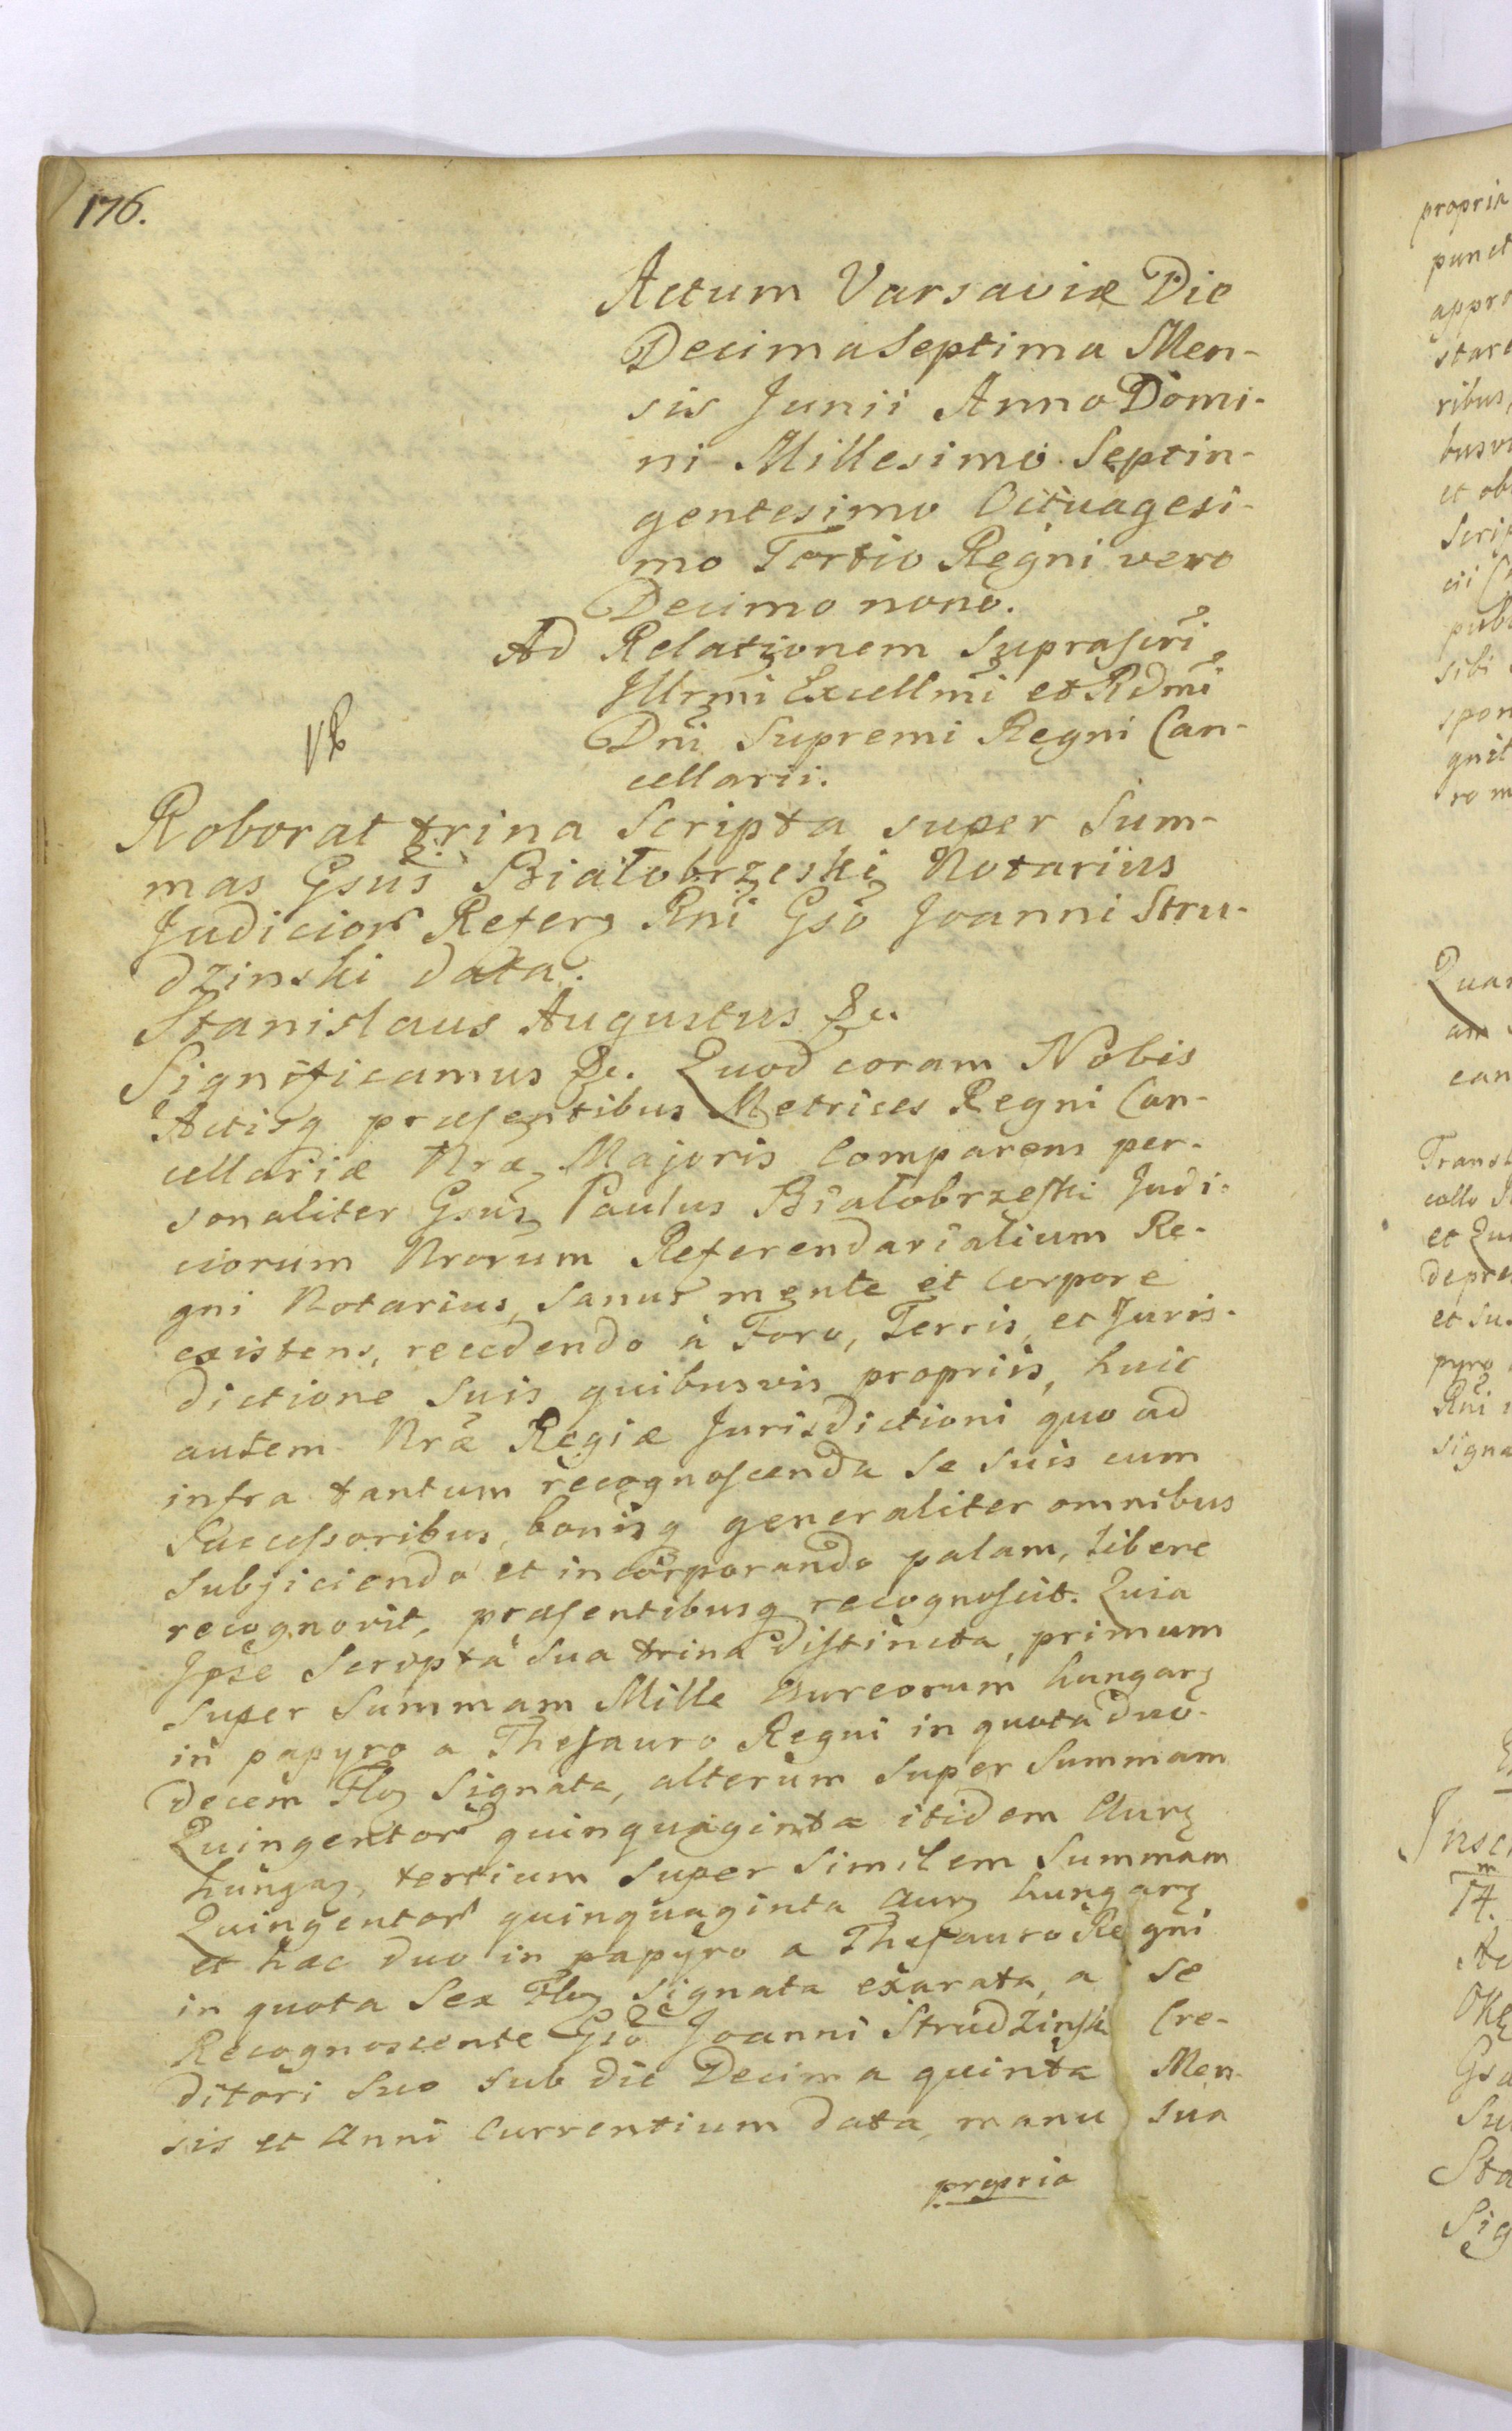 176.
Actum Varsaviæ Die
Decima Septima Men-
sis Junii Anno Domi-
ni Millesimo Septin-
gentesimo Octuagesi-
mo Tertio Regni vero
Decimo nono.
Ad Relationem Suprascri
Illrmi Excellmi et Rdmi
Dni Supremi Regni Can-
cellarii.
Roborat trina Scripta super Sum-
mas Gsus Białobrzeski Notarius
Judicior Refer Rni Gso Joanni Stru-
dzinski data.
Stanislaus Augustus &c.
Significamus &c. Quod coram Nobis
Actisq præsentibus Metrices Regni Can-
cellariæ Nræ Majoris Comparens per-
sonaliter Gsus Paulus Białobrzeski Judi-
ciorum Nrorum Referendarialium Re-
gni Notarius, Sanus mente et Corpore
existens, recedendo à Foro, Terris, et Juris-
dictione Suis quibusvis propriis, huic
autem Nræ Regiæ Jurisdictioni quo ad
infra tantum recognoscenda Se Suis cum
Successoribus, bonisq generaliter omnibus
Subjiciendo et incorporando palam, Libere
recognovit, præsentibusq recognoscit. Quia
Ipse Scripta Sua trina distincta, primum
Super Summam Mille Aureorum hungar
in papyro a Thesauro Regni in quota duo-
decem Flo Signata, alterum Super Summam
Quingentor quinquaginta itidem Aur
hunga, tertium Super Similem Summam
Quingentor quinquaginta Aur hungar
et hæc duo in papyro a Thesauro Regni
in quota Sex Flo Signata exarata, a Se
Recognoscente Gso Joanni Strudzinski Cre-
ditori Suo Sub die Decima quinta Men-
sis et Anni Currentium data, manu Sua
propria
propria
punct
appro
ribus,
et ob
sibi
spon
gnit
ro m
Qua
am
can
collo
et Qu
depre
et Su
pyro
Rni
signa
14.
Su
Sta
Sig